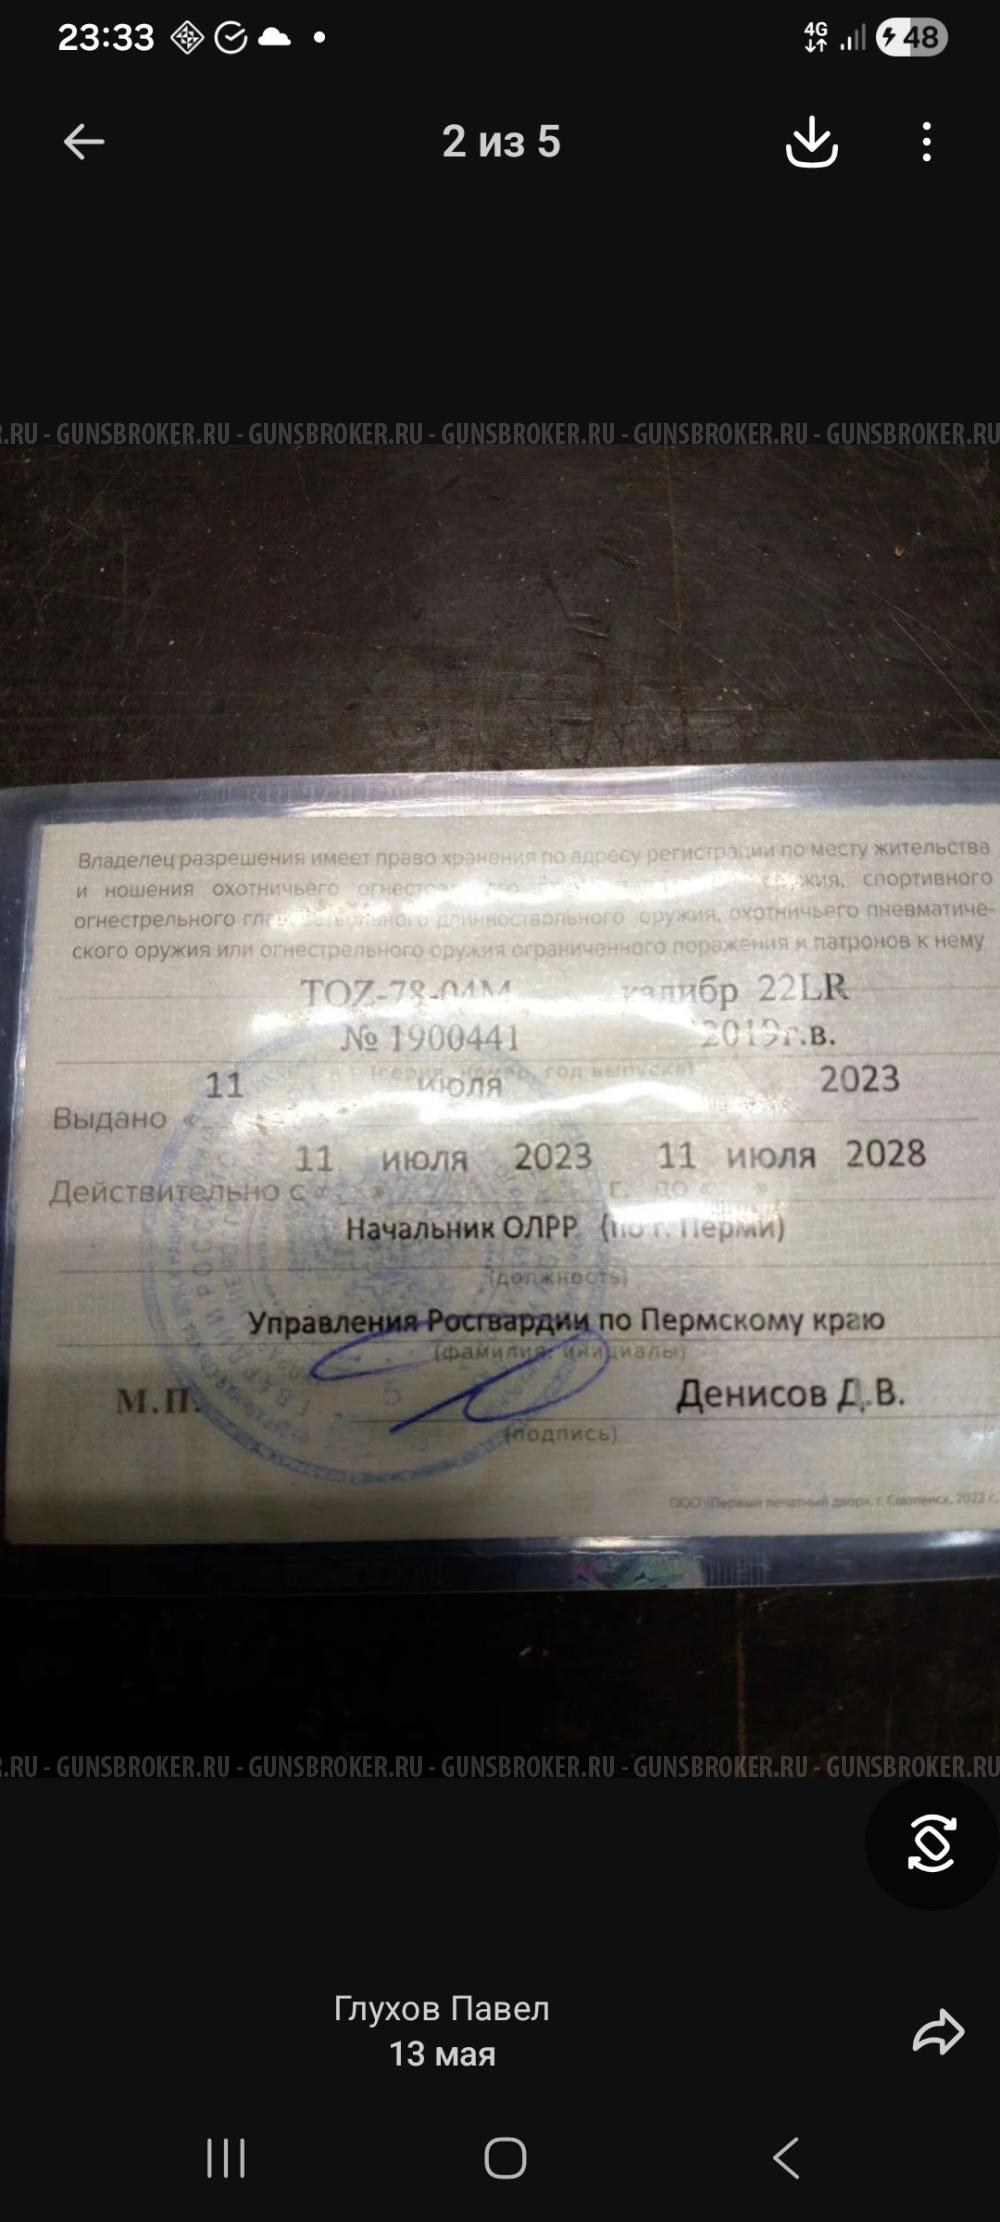 23:33 4G 48
2 из 5
R.RU - GUNSBROKER.RU - GUNSBROKER.RU - GUNSBROKER.RU - GUNSBROKER.RU - GUNSBROKER.RU
Владелец разрешения имеет право хранения по адресу регистрации по месту жительства
и ношения охотничьего спортивного
огнестрельного длинноствольного оружия, охотничьего пневматиче-
ского оружия или огнестрельного оружия ограниченного поражения и патронов к нему
TOZ-78-04M калибр 22LR
№ 1900441 2019г.в.
(серия, номер, год выпуска)
11 июля 2023
Выдано «
11 июля 2023 11 июля 2028
Действительно с « » г. по « »
Начальник ОЛРР (по г. Перми)
(должность)
Управления Росгвардии по Пермскому краю
(фамилия, инициалы)
М.П. Денисов Д.В.
(подпись)
ООО «Первый печатный двор», г. Смоленск, 2022 г.
R.RU - GUNSBROKER.RU - GUNSBROKER.RU - GUNSBROKER.RU - GUNSBROKER.RU - GUNSBROKER.RU
Глухов Павел
13 мая